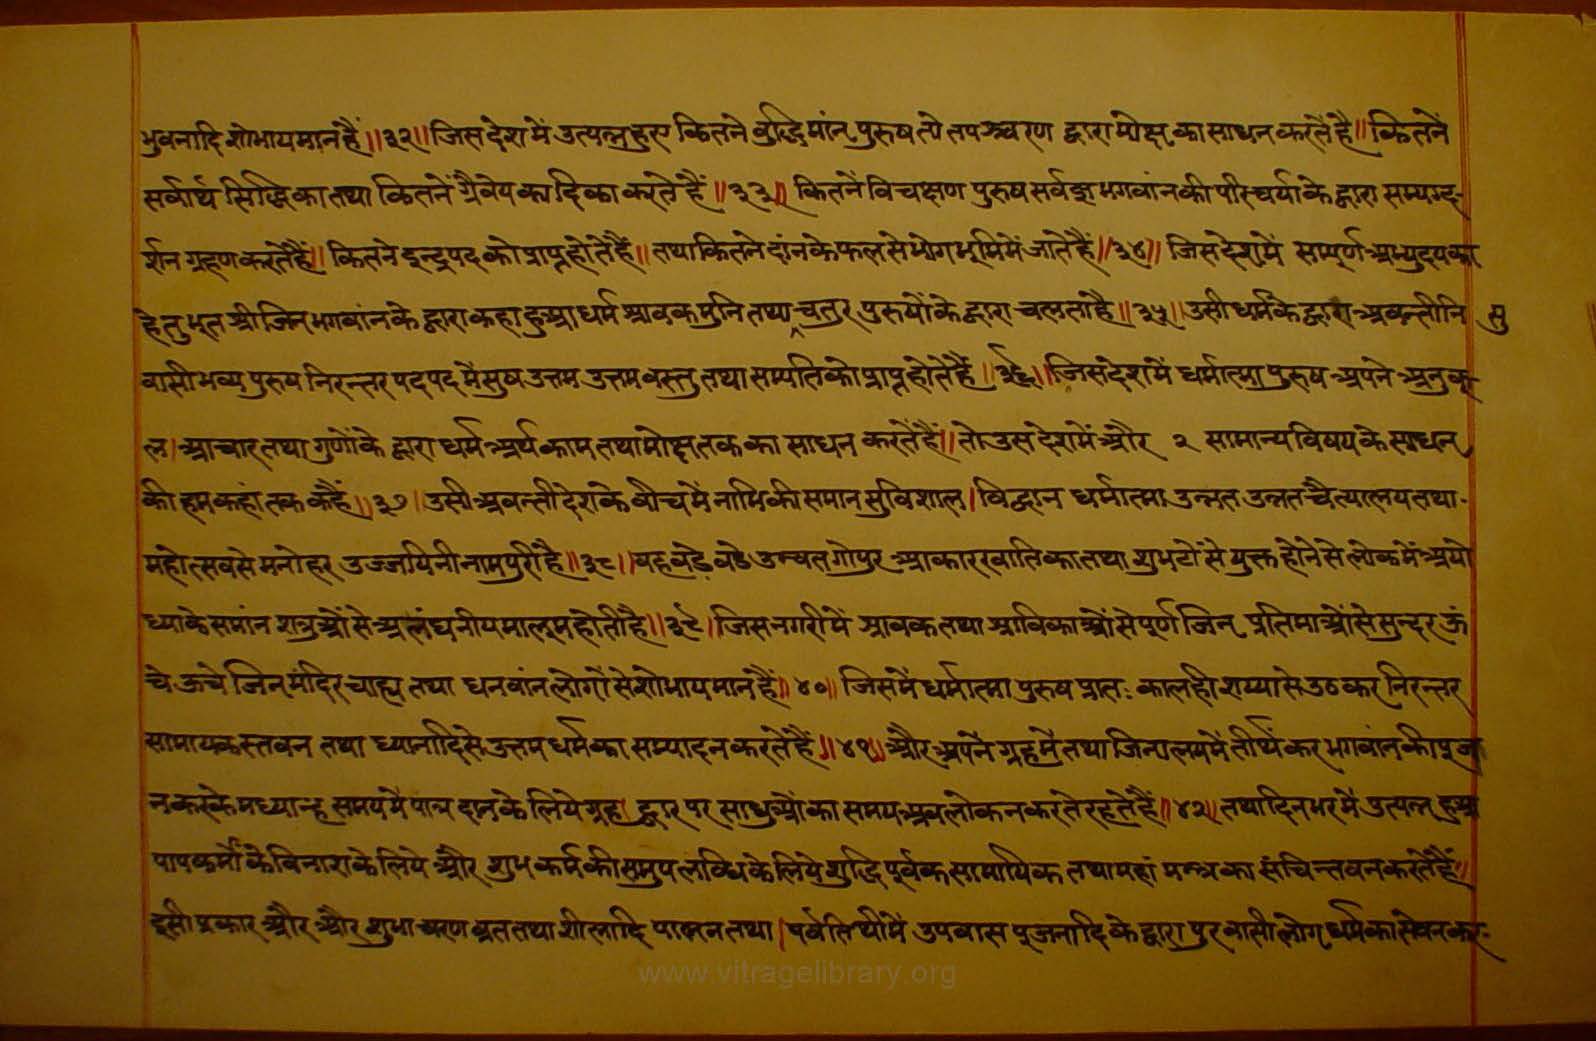 भुवनादि शोभायमान हैं॥३२॥ जिस देश में उत्पन्न हुए कितने बुद्धिमांन् पुरुष तो तपश्चरण द्वारा मोक्ष का साधन करते है॥ कितनें
सर्वार्थ सिद्धि का तथा कितनें ग्रैवेयकादि का करते हैं॥३३॥ कितनें विचक्षण पुरुष सर्वज्ञ भगवांन की परिचर्या के द्वारा सम्यग्द-
र्शन ग्रहण करते हैं॥ कितने इन्द्र पद को प्राप्त होते हैं॥ तथा कितने दांन के फल से भोग भूमि में जाते हैं॥३४॥ जिस देश में सम्पूर्ण अभ्युदय का
हेतु भूत श्री जिन भगवांन के द्वारा कहा हुआ धर्म श्रावक मुनि तथा चतुर पुरुषों के द्वारा चलता है॥३५॥ उसी धर्म के द्वारा अवन्ती नि सु
वासी भव्य पुरुष निरन्तर पद पद में सुष उत्तम उत्तम वस्तु तथा सम्पति को प्राप्त होते हैं॥३६॥ जिस देश में धर्मात्मा पुरुष अपने अनुकू-
ल। आचार तथा गुणों के द्वारा धर्म अर्थ काम तथा मोक्ष तक का साधन करते हैं॥ तो उस देश में और २ सामान्य विषय के साधन
की हम कहां तक कहैं॥३७॥ उसी अवन्ती देश के वीच में नाभि की समान सुविशाल। विद्वान धर्मात्मा उन्नत उन्नत चैत्यालय तथा-
महोत्सव से मनोहर उज्जयिनी नाम पुरी है॥३८॥ यह वडे वडे उन्चत गोपुर आकार खातिका तथा शुभटों सें युक्त होने से लोक में अयो
ध्या के समांन शत्रुओं से अलंघनीय मालूम होती है॥३९॥ जिस नगरी में श्रावक तथा श्राविकाओं से पूर्ण जिन प्रतिमाओं से सुन्दर ऊं
चे ऊचे जिन मंदिर चाह्य तथा धनवांन लोगों से शोभायमान हैं॥४०॥ जिस में धर्मात्मा पुरुष प्रातः काल ही शय्या से उठ कर निरन्तर
सामायक स्तवन तथा ध्यानादि से उत्तम धर्म का सम्पादन करते हैं॥४१॥ और अपने ग्रह में तथा जिनालय में तीर्थंकर भगवांन की पूज
न करके मध्यान्ह समय में पात्र दान के लिये ग्रह। द्वार पर साधुओं का समय अवलोकन करते रहते हैं॥४२॥ तथा दिन भर में उत्पन्न हुआ
पाप कर्मों के विनाश के लिये और शुभ कर्म की समुपलब्धि के लिये शुद्धि पूर्वक सामायिक तथा महां मन्त्र का संचिन्तवन करते हैं॥
इसी प्रकार और और शुभाचरण व्रत तथा शीलादि पालन तथा। पर्व तिथी में उपवास पूजनादि के द्वारा पुरवासी लोग धर्म का सेवन कर-
www.vitragelibrary.org